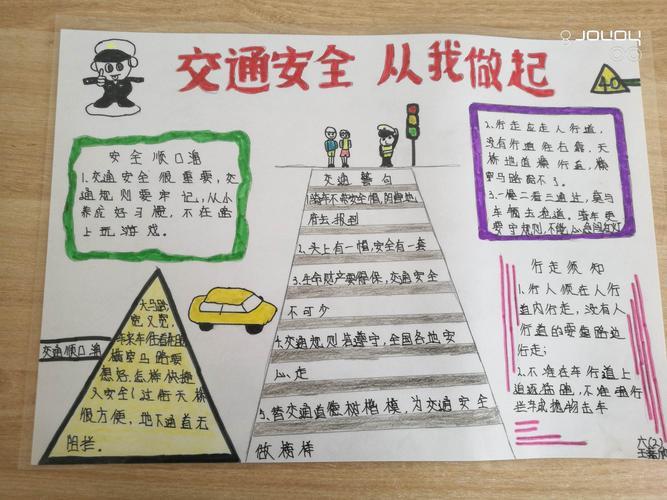 JOVOY
交通安全 从我做起
40
安全顺口溜
1.交通安全很重要,交
通规则要牢记,从小
养成好习惯,不在路
上玩游戏。
交通警句
1.骑车不带安全帽,阴曹地
府去报到
2.头上有一帽,安全有一套
3.生命财产要得保,交通安全
不可少
4.交通规则若遵守,全国各地安
心走
5.替交通道德树楷模,为交通安全
做榜样
2.行走应走人行道,
没有行道往右靠,天
桥地道横行道,横
穿马路
3.一慢二看三通过,莫与
车辆去抢道。骑车更
要守规则,不能
交通顺口溜
大马路,
宽又宽,
横穿马路要
想好,怎样快捷
又安全(过街天桥
很方便,地下通道无
阻拦。
行走须知
1.行人须在人行
道内行走,没有人
行道的要靠路边
行走;
2.不准在车行道上
追逐 不准
抛物击车
六(2)
王